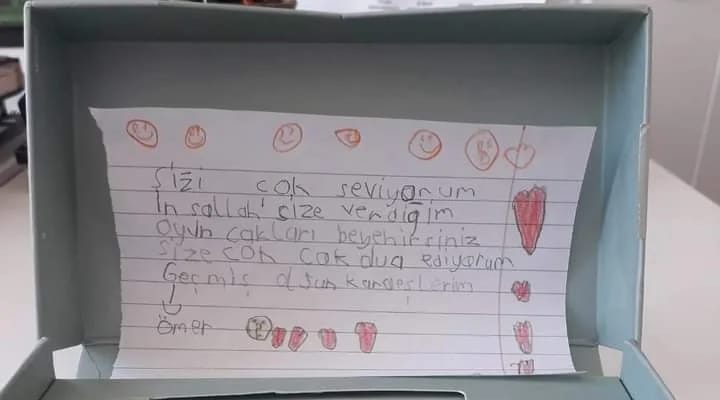 Sizi çok seviyorum
İn şallah size verdiğim
Oyun cakları beyenirsiniz
Size çok çok dua ediyorum
Geçmiş olsun kardeşlerim
ömer